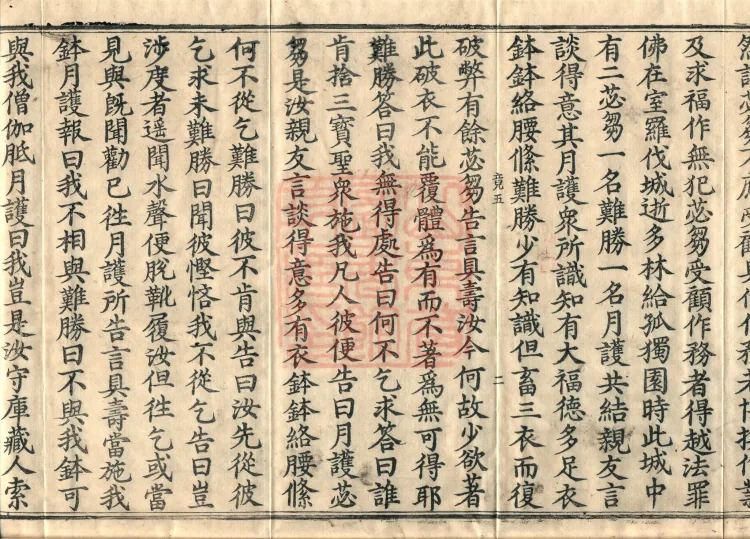 及求福作無犯苾芻受顧作務者得越法罪
佛在室羅伐城逝多林給孤獨園時此城中
有二苾芻一名難勝一名月護共結親友言
談得意其月護衆所識知有大福德多足衣
鉢鉢絡腰絛難勝少有知識但畜三衣而復
竟五
二
破弊有餘苾芻告言具壽汝今何故少欲著
此破衣不能覆體為有而不著為無可得耶
難勝答曰我無得處告曰何不乞求答曰誰
肯捨三寶聖衆施我凡人彼便告曰月護苾
芻是汝親友言談得意多有衣鉢鉢絡腰絛
何不從乞難勝曰彼不肯與告曰汝先從彼
乞求未難勝曰聞彼慳悋我不從乞告曰豈
涉度者遥聞水聲便脫鞾履汝但往乞或當
見與旣聞勸已往月護所告言具壽當施我
鉢月護報曰我不相與難勝曰不與我鉢可
與我僧伽胝月護曰我豈是汝守庫藏人索